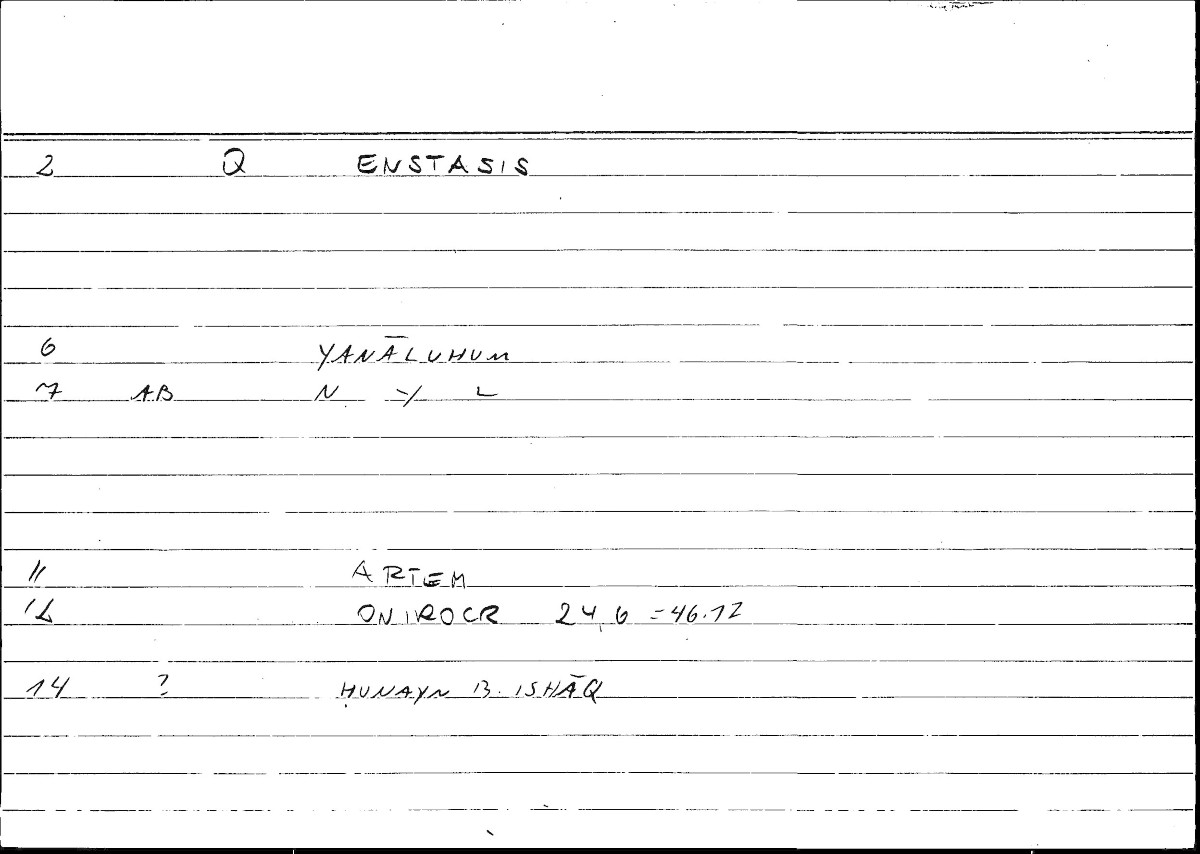 2 Q ENSTASIS
6 YANĀLUHUM
7 AB N Y L
11 ARTEM
12 ONIROCR 24,6 = 46.12
14 ? ḤUNAYN B. ISHĀQ